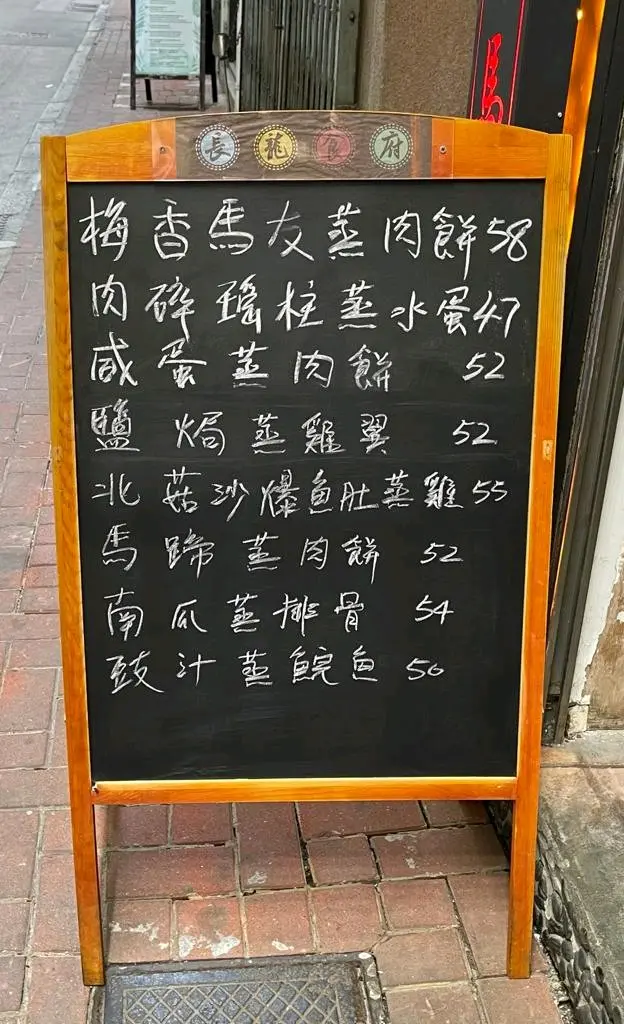 長龍食府
梅香馬友蒸肉餅58
肉碎瑤柱蒸水蛋47
咸蛋蒸肉餅 52
鹽焗蒸雞翼 52
北菇沙爆魚肚蒸雞55
馬蹄蒸肉餅 52
南瓜蒸排骨 54
豉汁蒸鯇魚 50